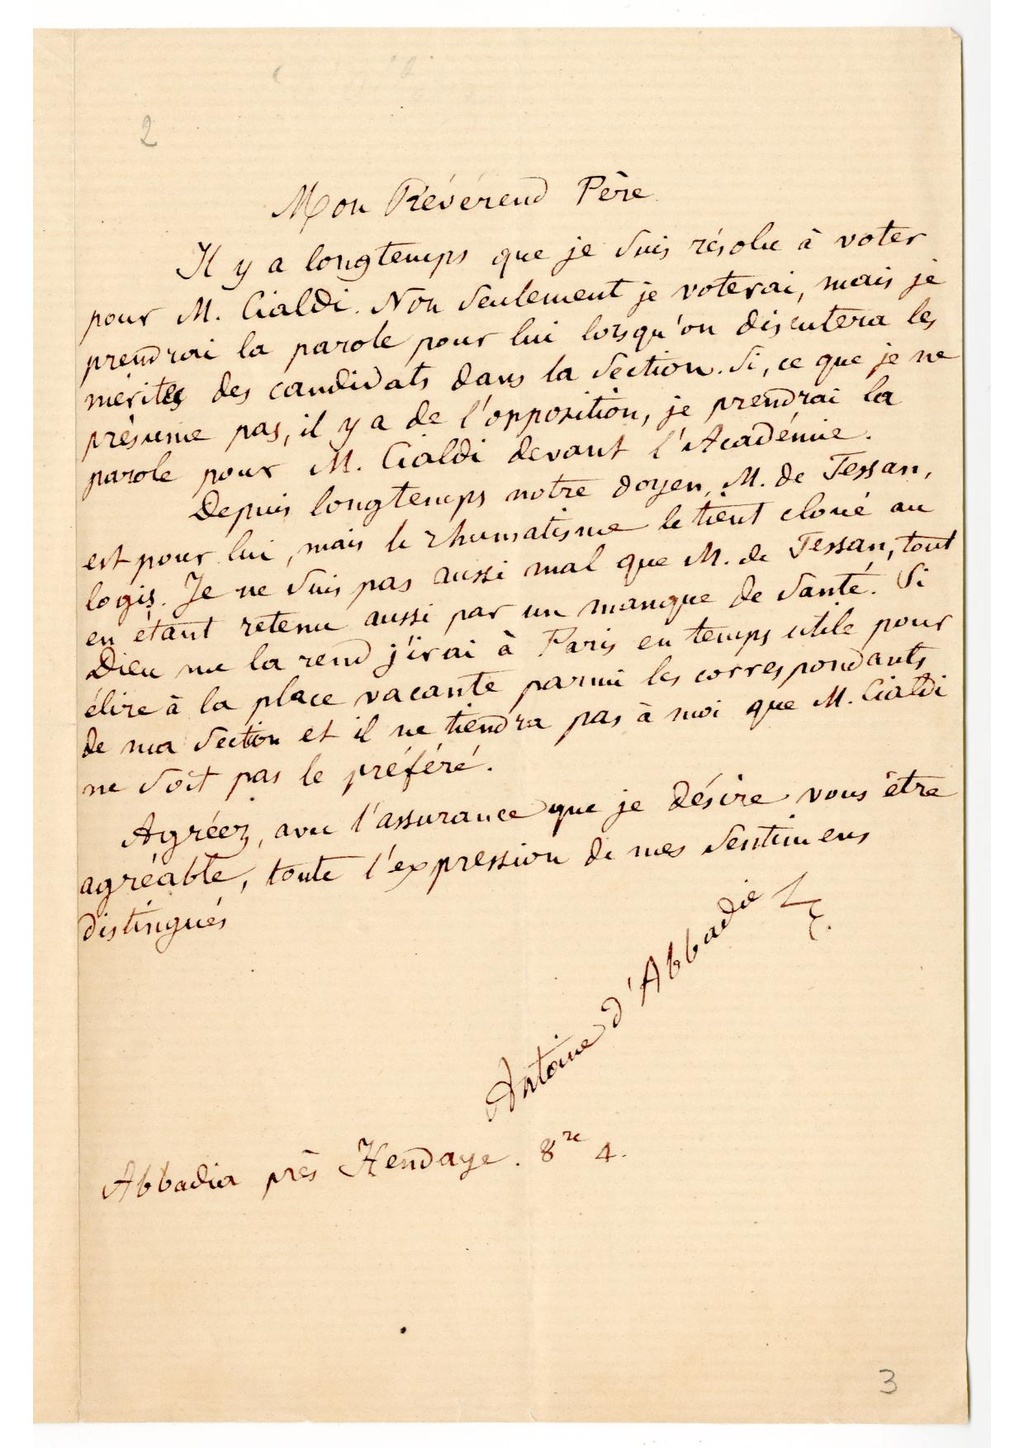 2
Mon Révérend Père
Il y a longtemps que je suis résolu à voter
pour M. Cialdi. Non seulement je voterai, mais je
prendrai la parole pour lui lorsqu'on discutera les
mérites des candidats dans la Section. Si, ce que je ne
présume pas, il y a de l'opposition, je prendrai la
parole pour M. Cialdi devant l'Académie.
Depuis longtemps notre doyen, M. de Tessan,
est pour lui, mais le rhumatisme le tient cloué au
logis. Je ne suis pas aussi mal que M. de Tessan, tout
en étant retenu aussi par un manque de santé. Si
Dieu me la rend j'irai à Paris en temps utile pour
élire à la place vacante parmi les correspondants
de ma Section et il ne tiendra pas à moi que M. Cialdi
ne soit pas le préféré.
Agréez, avec l'assurance que je désire vous être
agréable, toute l'expression de mes sentimens
distingués
Antoine d'Abbadie
Abbadia près Hendaye. 8re 4.
3